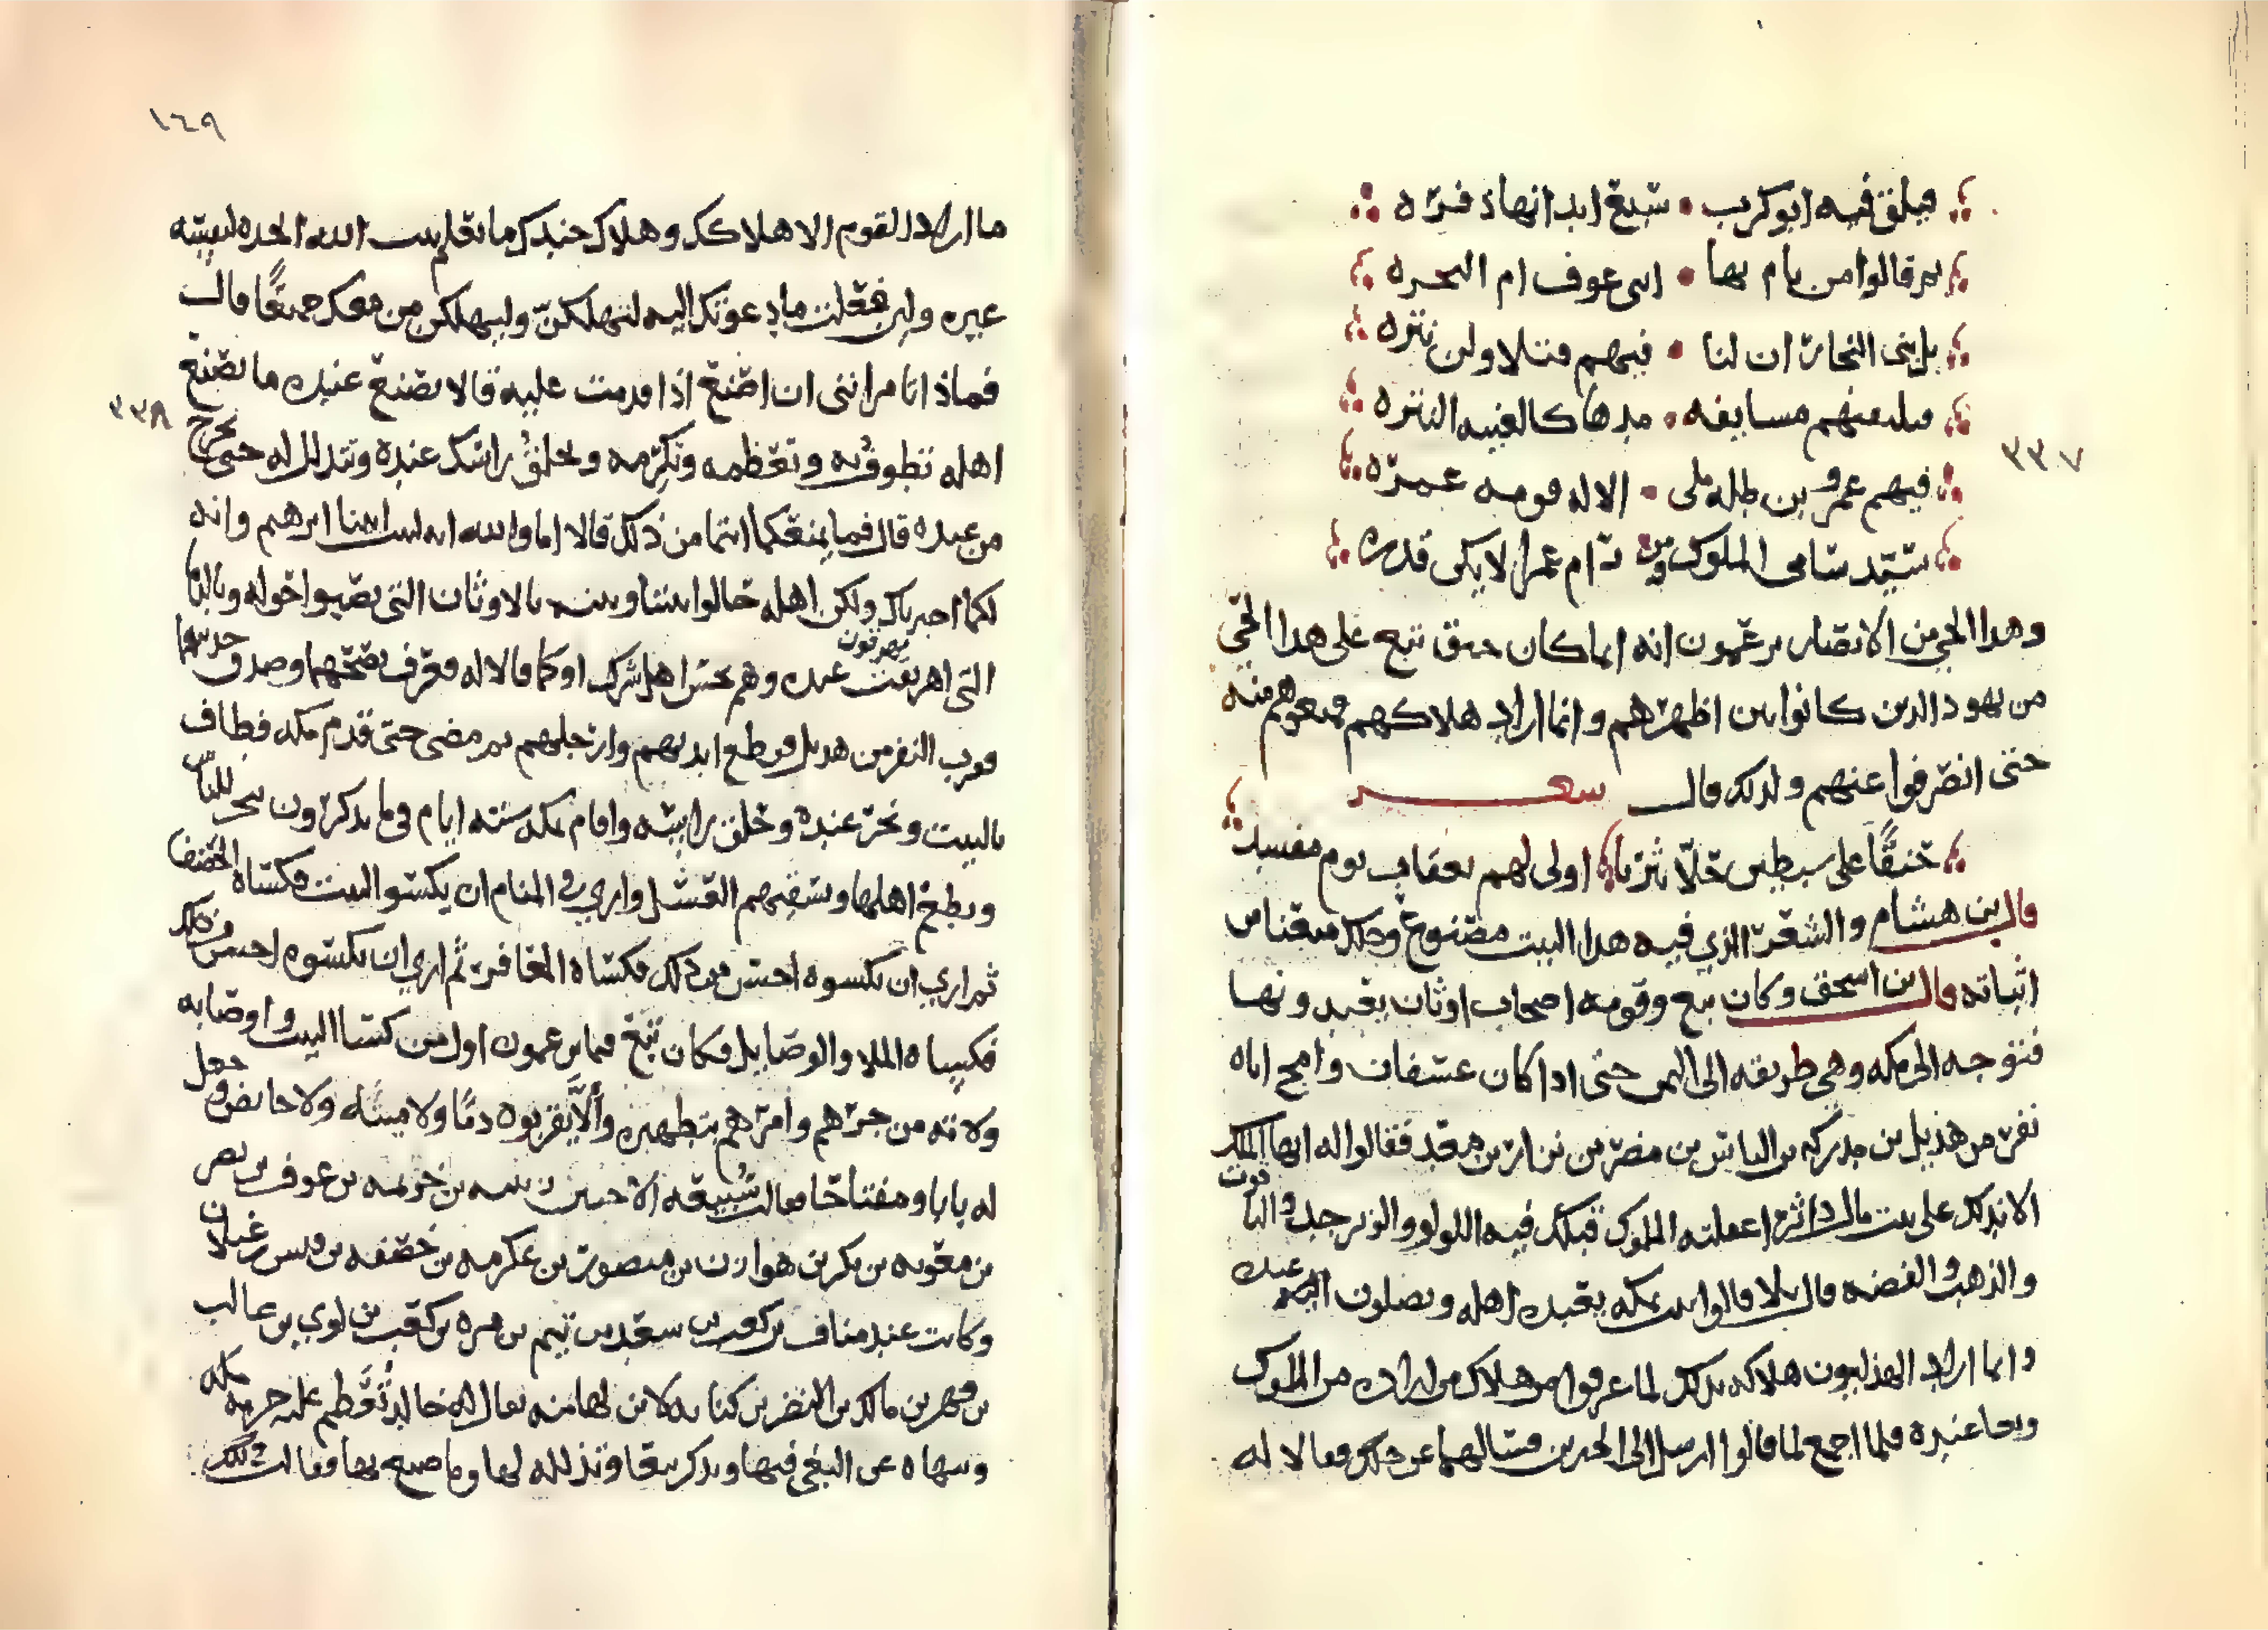 فيلق فيه ابو كرب • سبغ ابدانها ذفره
ثم قالوا من يام بها • ابني عوف ام النجره
بل بني النجار ان لنا • فيهم قتلا ولن تتره
فتلقتهم مسايفه • مدها كالغبيه النثره
فيهم عمرو بن طله ملى • الاله قومه عمره
سيد سامى الملوك ومن رام عمرا لا يكن قدره
٣٣٧
وهدا الحي من الانصار يزعمون انه انما كان حنق تبع على هدا الحي
من يهود الدين كانوا بين اظهرهم وانما اراد هلاكهم فمنعوهم منه
حتى انصرفوا عنهم ولدلك قال شعر
حنقا على سبطين حلا يثربا اولى لهم بعقاب يوم مفسد
قال بن هشام والشعر الذي فيه هدا البيت مصنوع فدلك منعنا من
اثباته قال ابن اسحق وكان تبع وقومه اصحاب اوثان يعبدونها
فتوجه الى مكه وهى طريقه الى اليمن حتى ادا كان عسفان وامج اتاه
نفر من هذيل بن مدركه بن الياس بن مضر بن نزار بن معد فقالوا له ايها الملك
الا ندلك على بيت مال داثر اغفلته الملوك قبلك فيه اللولو والزبرجد والياقوت
والذهب والفضه قال بلا قالوا بيت بمكه يعبده اهله ويصلون عنده
وانما اراد الهذليون هلاكه بدلك لما عرفوا من هلاك من اراده من الملوك
وبغا عنده فلما اجمع لما قالوا ارسل الى الحبرين فسالهما عن دلك فقالا له
١٤٩
ما اراد القوم الا هلاكك وهلاك جندك ما نعلم بيت الله اتخده لنفسه
غيره ولين فعلت ما دعوتك اليه لتهلكن وليهلكن من معك جميعا قال
فماذا تامرانني ان اصنع اذا قدمت عليه قالا تصنع عنده ما يصنع
٣٣٨
اهله تطوف به وتعظمه وتكرمه وتحلق راسك عنده وتتذلل له حتى تخرج
من عنده قال فما يمنعكما انتما من ذلك قالا اما والله انه لبيت ابينا ابرهيم وانه
لكما اخبرناك ولكن اهله حالوا بيننا وبينه بالاوثان التي نصبوا حوله وبالدما
التى يهرقون عنده وهم نجس اهل شرك او كما قالا له فعرف نصحهما وصدق حديثهما
فقرب النفر من هديل فقطع ايديهم وارجلهم ثم مضى حتى قدم مكه فطاف
بالبيت ونحر عنده وحلق راسه واقام بمكه سته ايام فيما يدكرون ينحر للناس
ويطعم اهلها ويسقيهم العسل واري في المنام ان يكسو البيت فكساه الخصف
ثم اري ان يكسوه احسن من دلك فكساه المعافر ثم اري ان يكسوه احسن من ذلك
فكساه الملا والوصايل فكان تبع فيما يزعمون اول من كسا البيت واوصا به
ولاته من جرهم وامرهم بتطهيره والا يقربوه دما ولا ميته ولا حايض وجعل
له بابا ومفتاحا فقالت سبيعه الاحب بن زبينه بن خزيمه بن عوف بن نصر
بن معويه بن بكر بن هوازن بن منصور بن عكرمه بن خصفه بن قيس بن غيلان
وكانت عند مناف بن كعب بن سعد بن تيم بن مره بن كعب بن لوي بن غالب
بن فهر بن مالك بن النضر بن كنانه لابن لها منه يقال له خالد تعظم عليه حرمه مكه
وتنهاه عن البغي فيها وتدكر تبعا وتذلله لها وما صنع بها فقالت